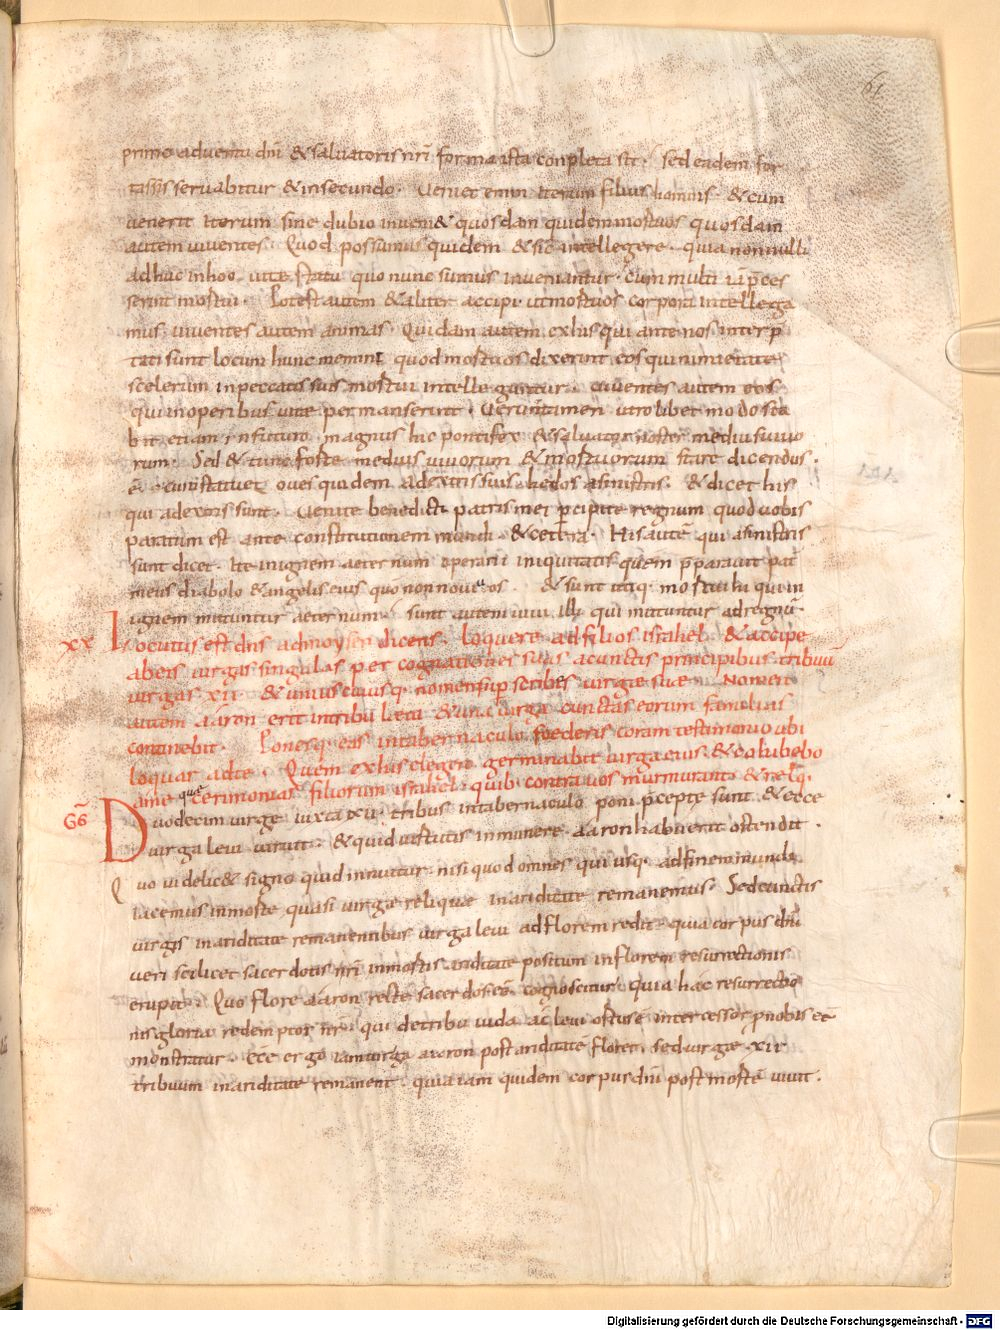 61
primo aduentu dnī & saluatoris nrī forma ista conpleta sit. sed eadem for
tassis seruabitur & in secundo. Ueniet enim iterum filius hominis. & cum
uenerit iterum sine dubio inueni& quosdam quidem mortuos quosdam
autem uiuentes. Quod possumus quidem & sic intellegere. quia nonnulli
adhuc in hoc uite statu quo nunc sumus inueniantur. cum multi iā p̄ces
serint mortui. Potest autem & aliter accipi. ut mortuos corpora intellega
mus. uiuentes autem animas. Quidam autem ex his qui ante nos interp̄
tati sunt locum hunc memini quod mortuos dixerint eos qui nimietate
scelerum in peccatis suis mortui intellegantur. uiuentes autem eos
qui in operibus uitae permanserint. Ueruntamen utrolibet modo sta
bit etiam in futuro. magnus hic pontifex & saluator noster medius uiuo
rum. Sed & tunc forte medius uiuorum & mortuorum stare dicendus.
ē. cum statuet oues quidem ad extris suis. hedos a sinistris. & dicet his
qui ad extris sunt. Uenite benedicti patris mei p̄cipite regnum quod uobis
paratum est ante constitutionem mundi. & cetera. His autē qui a sinistris
sunt dicet. Ite in ignem aeternum operarii iniquitatis quem p̄parauit pat̄
meus diabolo & angelis eius quō non noui uos. & sunt utiq. mortui hi qui in
ignem mittuntur aeternum. sunt autem uiui illi qui mittuntur ad regnū.
xx Locutus est dn̄s ad moysen dicens. loquere ad filios israhel. & accipe
ab eis uirgas singulas per cognationes suas a cunctis principibus tribuū
uirgas xii. & uniuscuiusq. nomen sup scribes uirgae suae. Nomen
autem aaron erit in tribu leui & una uirga cunctas eorum familias
continebit. Ponesq. eas in tabernaculo foederis coram testimonio ubi
loquar ad te. Quem ex his elegero germinabit uirga eius. & cohibebo
a me querimonias filiorum israhel. quib. contra uos murmurant. & relq.
GḠ Duodecim uirge iuxta xii. tribus in tabernaculo poni p̄cepte sunt. & ecce
uirga leui uiruit. & quid uirtutis in munere aaron habuerit ostendit.
Quo uidelic& signo quid innuitur. nisi quod omnes qui usq. ad finem mundi
iacemus in morte quasi uirgae reliquae in ariditate remanemus. Sed cunctis
uirgis in ariditate remanentibus uirga leui ad florem redit. quia corpus dn̄i
ueri scilicet sacerdotis nrī in mortis ariditate positum in florem resurrectionis
erupit. Quo flore aaron recte sacerdos eē cognoscitur. quia hac resurrectio
nis gloria redemptor nr̄. qui de tribu iuda ac leui ortus ē intercessor p nobis eē
monstratur. Ecce ergo iam uirga aaron post ariditatē floret. sed uirgae xii
tribuum in ariditate remanent. quia iam quidem corpus dn̄i post mortē uiuit.
Digitalisierung gefördert durch die Deutsche Forschungsgemeinschaft - DFG